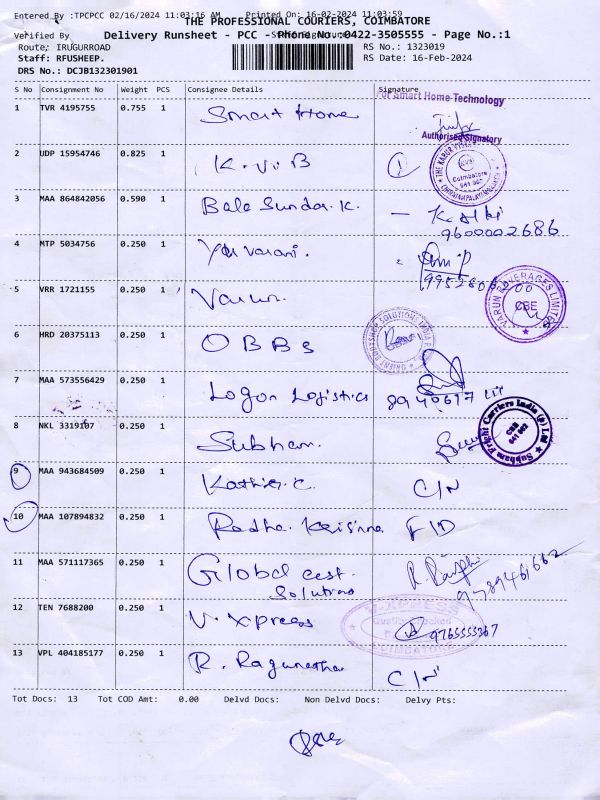 Entered By :TPCPCC 02/16/2024 11:03:16 AM Printed On: 16-02-2024 11:03:59
THE PROFESSIONAL COURIERS, COIMBATORE
Verified By
Delivery Runsheet - PCC - Phone No.:0422-3505555 - Page No.:1
Route: IRUGURROAD
RS No.: 1323019
Staff: RFUSHEEP.
RS Date: 16-Feb-2024
DRS No.: DCJB132301901
S No Consignment No Weight PCS Consignee Details Signature
For Smart Home Technology
1 TVR 4195755 0.755 1 Smart Home
Authorised Signatory
2 UDP 15954746 0.825 1 K.V.B
THE KARUR VYSYA
KVB
Coimbatore
641 062
3 MAA 864842056 0.590 1 Bala Sundar. K.
9600002686
4 MTP 5034756 0.250 1
5 VRR 1721155 0.250 1 Varun.
VARUN BEVERAGES LIMITED
CBE
6 HRD 20375113 0.250 1 OBBS
ORIENT BOOKSHOP SOLUTIONS INDIA
7 MAA 573556429 0.250 1 Logon Logistics
8 NKL 3319107 0.250 1 Subham.
Subham Prithi Carriers India (p) Ltd
CBE
641 062
9 MAA 943684509 0.250 1 Kathir. C. C/N
10 MAA 107894832 0.250 1 Radha Krisinna F/D
11 MAA 571117365 0.250 1 Global cest.
Solutions
9789461662
12 TEN 7688200 0.250 1 V. Xpress
V-XPRESS
Quality Checked
COIMBATORE
9765555367
13 VPL 404185177 0.250 1 R. Ragunathan C/N
Tot Docs: 13 Tot COD Amt: 0.00 Delvd Docs: Non Delvd Docs: Delvy Pts: